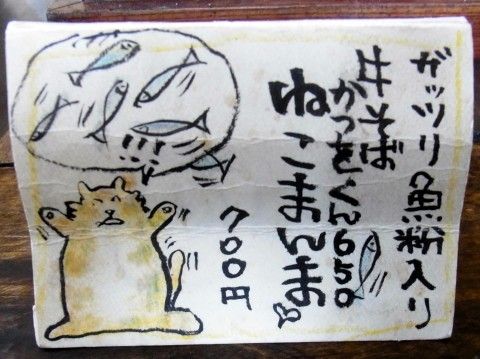 ガッツリ魚粉入り
牛そば
かつをくん650
ねこまんま
700円